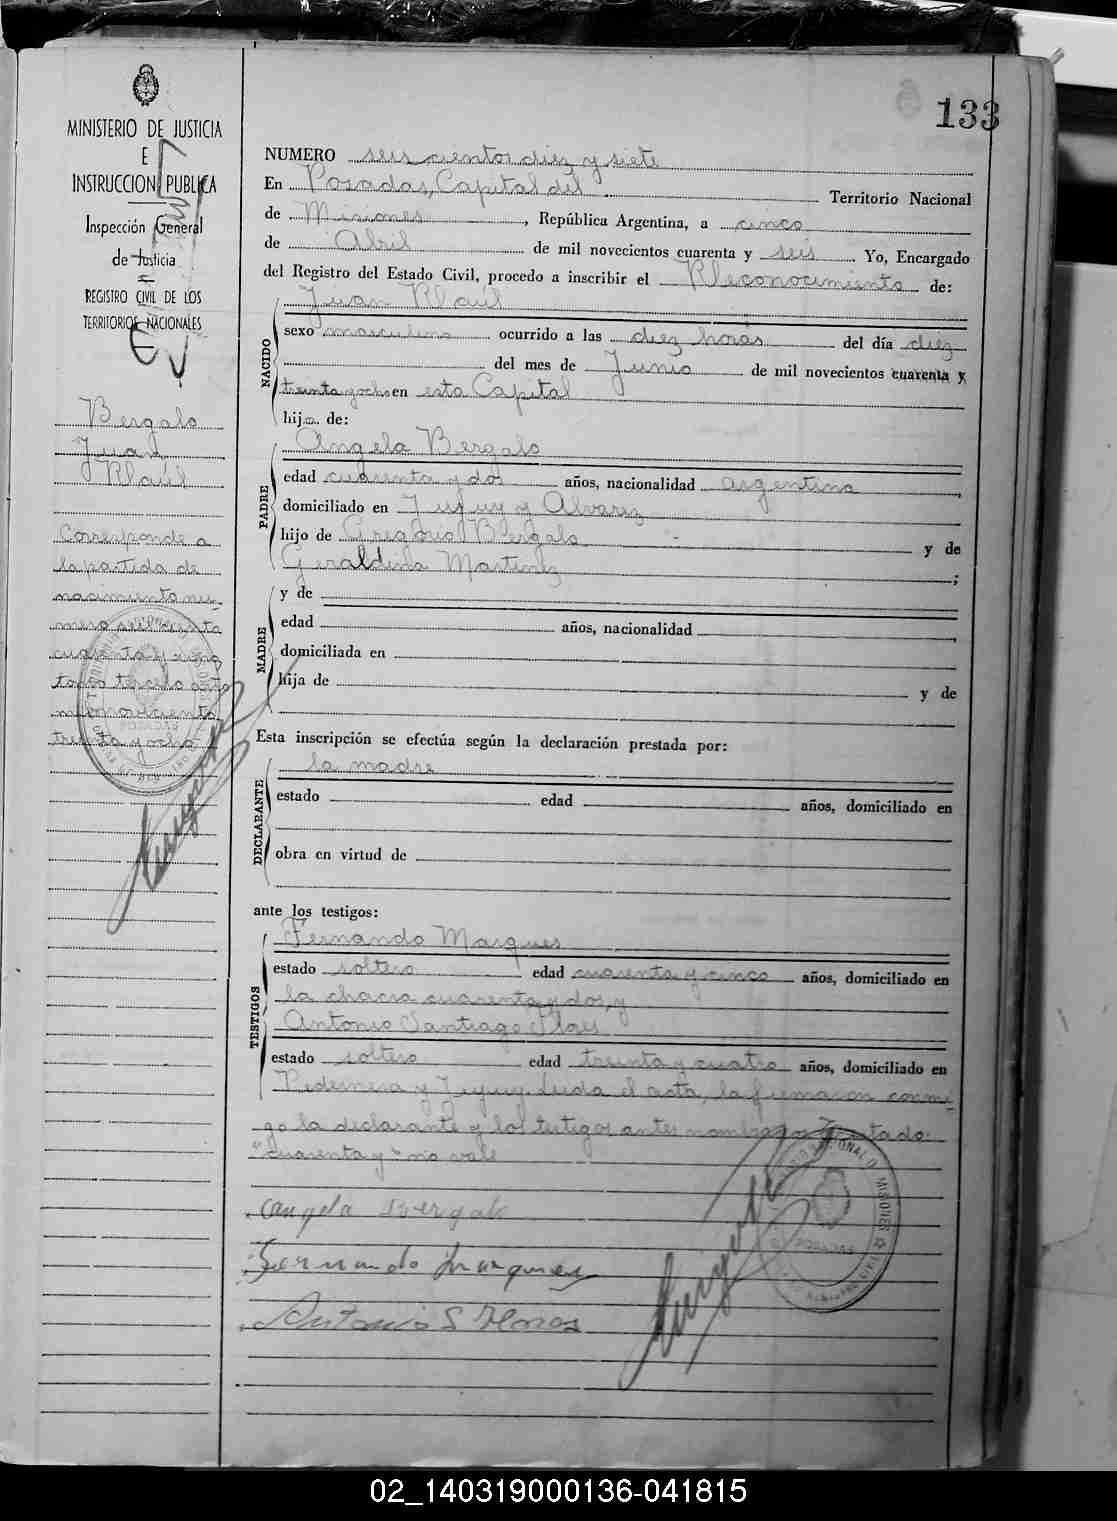 133
MINISTERIO DE JUSTICIA
E
INSTRUCCION PUBLICA
Inspección General
de Justicia
REGISTRO CIVIL DE LOS
TERRITORIOS NACIONALES
Bergalo
Juan
Raúl
Corresponde a
la partida de
nacimiento nú-
mero
cuarenta y
tomo tercero año
mil novecientos
treinta y ocho
NUMERO seis cientos diez y siete
En Posadas, Capital del Territorio Nacional
de Misiones, República Argentina, a cinco
de Abril de mil novecientos cuarenta y seis Yo, Encargado
del Registro del Estado Civil, procedo a inscribir el Reconocimiento de:
Juan Raul
NACIDO
sexo masculino ocurrido a las diez horas del día diez
del mes de Junio de mil novecientos cuarenta y
treinta y ocho en esta Capital
hijo de:
Angela Bergalo
PADRE
edad cuarenta y dos años, nacionalidad argentina,
domiciliado en Jujuy y Alvarez
hijo de Gregorio Bergalo y de
Geraldina Martinez;
MADRE
y de
edad años, nacionalidad,
domiciliada en
hija de y de
Esta inscripción se efectúa según la declaración prestada por:
la madre
DECLARANTE
estado edad años, domiciliado en
obra en virtud de
ante los testigos:
Fernando Marques
TESTIGOS
estado soltero edad cuarenta y cinco años, domiciliado en
la chacra cuarenta y dos, y
Antonio Santiago
estado soltero edad treinta y cuatro años, domiciliado en
Pedernera y Jujuy. Leida el acta, la firmaron conmi-
go la declarante y los testigos antes nombrados. Testado:
"cuarenta y" no vale
Angela Bergalo
Fernando Marques
Antonio S Flores
02_140319000136-041815